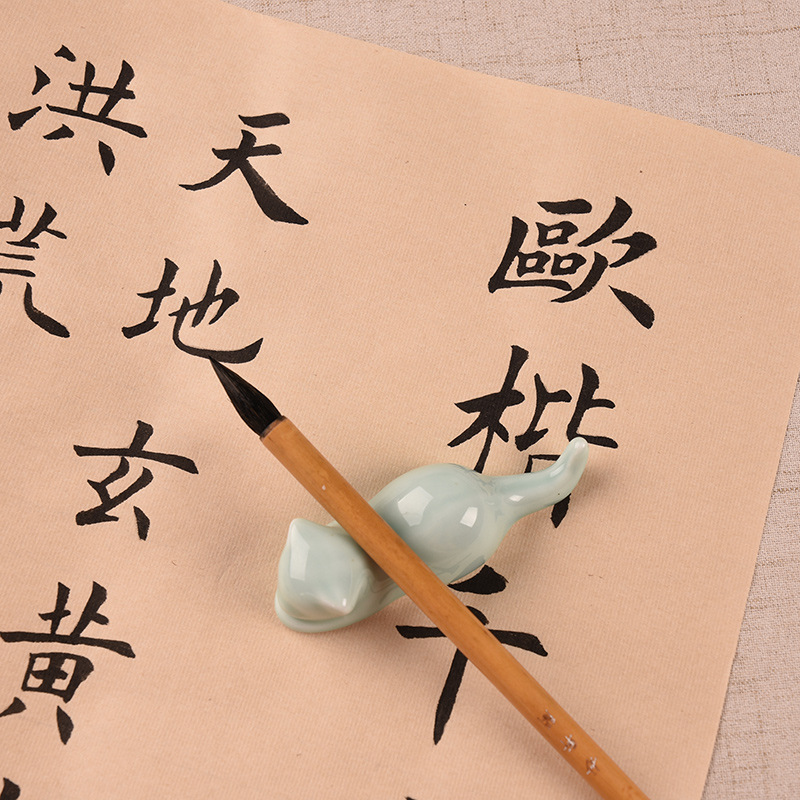 歐楷千
天地玄黄
洪荒